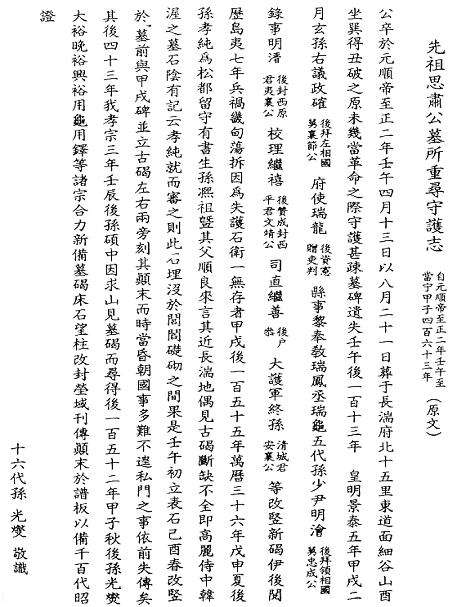 先祖思肅公墓所重尋守護志 自元順帝至正二年壬午至當宁甲子四百六十三年 (原文)
公卒於元順帝至正二年壬午四月十三日以八月二十一日葬于長湍府北十五里東道面細谷山酉
坐巽得丑破之原未幾當革命之際守護甚疎墓碑遺失壬午後一百十三年 皇明景泰五年甲戌二
月玄孫右議政確 後拜左相國男襄節公 府使瑞龍 後資憲贈吏判 縣事黎奉敎瑞鳳丞瑞龜五代孫少尹明澮 後拜領相國男忠成公
錄事明溍 後封西原君夷襄公 校理繼禧 後贊成封西平君文靖公 司直繼善 後戶叅 大護軍終孫 清城君安襄公 等改竪新碣伊後閱
歷島夷七年兵禍畿甸蕩拆因爲失護石衛一無存者甲戌後一百五十五年萬曆三十六年戊申夏後
孫孝純爲松都留守有書生孫凞祖曁其父順良來言其近長湍地偶見古碣斷缺不全即高麗侍中韓
渥之墓石陰有記云孝純就而審之則此石埋没於閭閻礎砌之間果是壬午初立表石己酉春改竪
於墓前與甲戌碑並立古碣左右兩旁刻其顚末而時當昏朝國事多難不遑私門之事依前失傳矣
其後四十三年我孝宗三年壬辰後孫碩中因求山見墓碣而尋得後一百五十二年甲子秋後孫光燮
大裕晚裕興裕用龜用鐸等諸宗合力新備墓碣床石望柱改封塋域刊傳顚末於譜板以備千百代昭
證
十六代孫 光燮 敬識